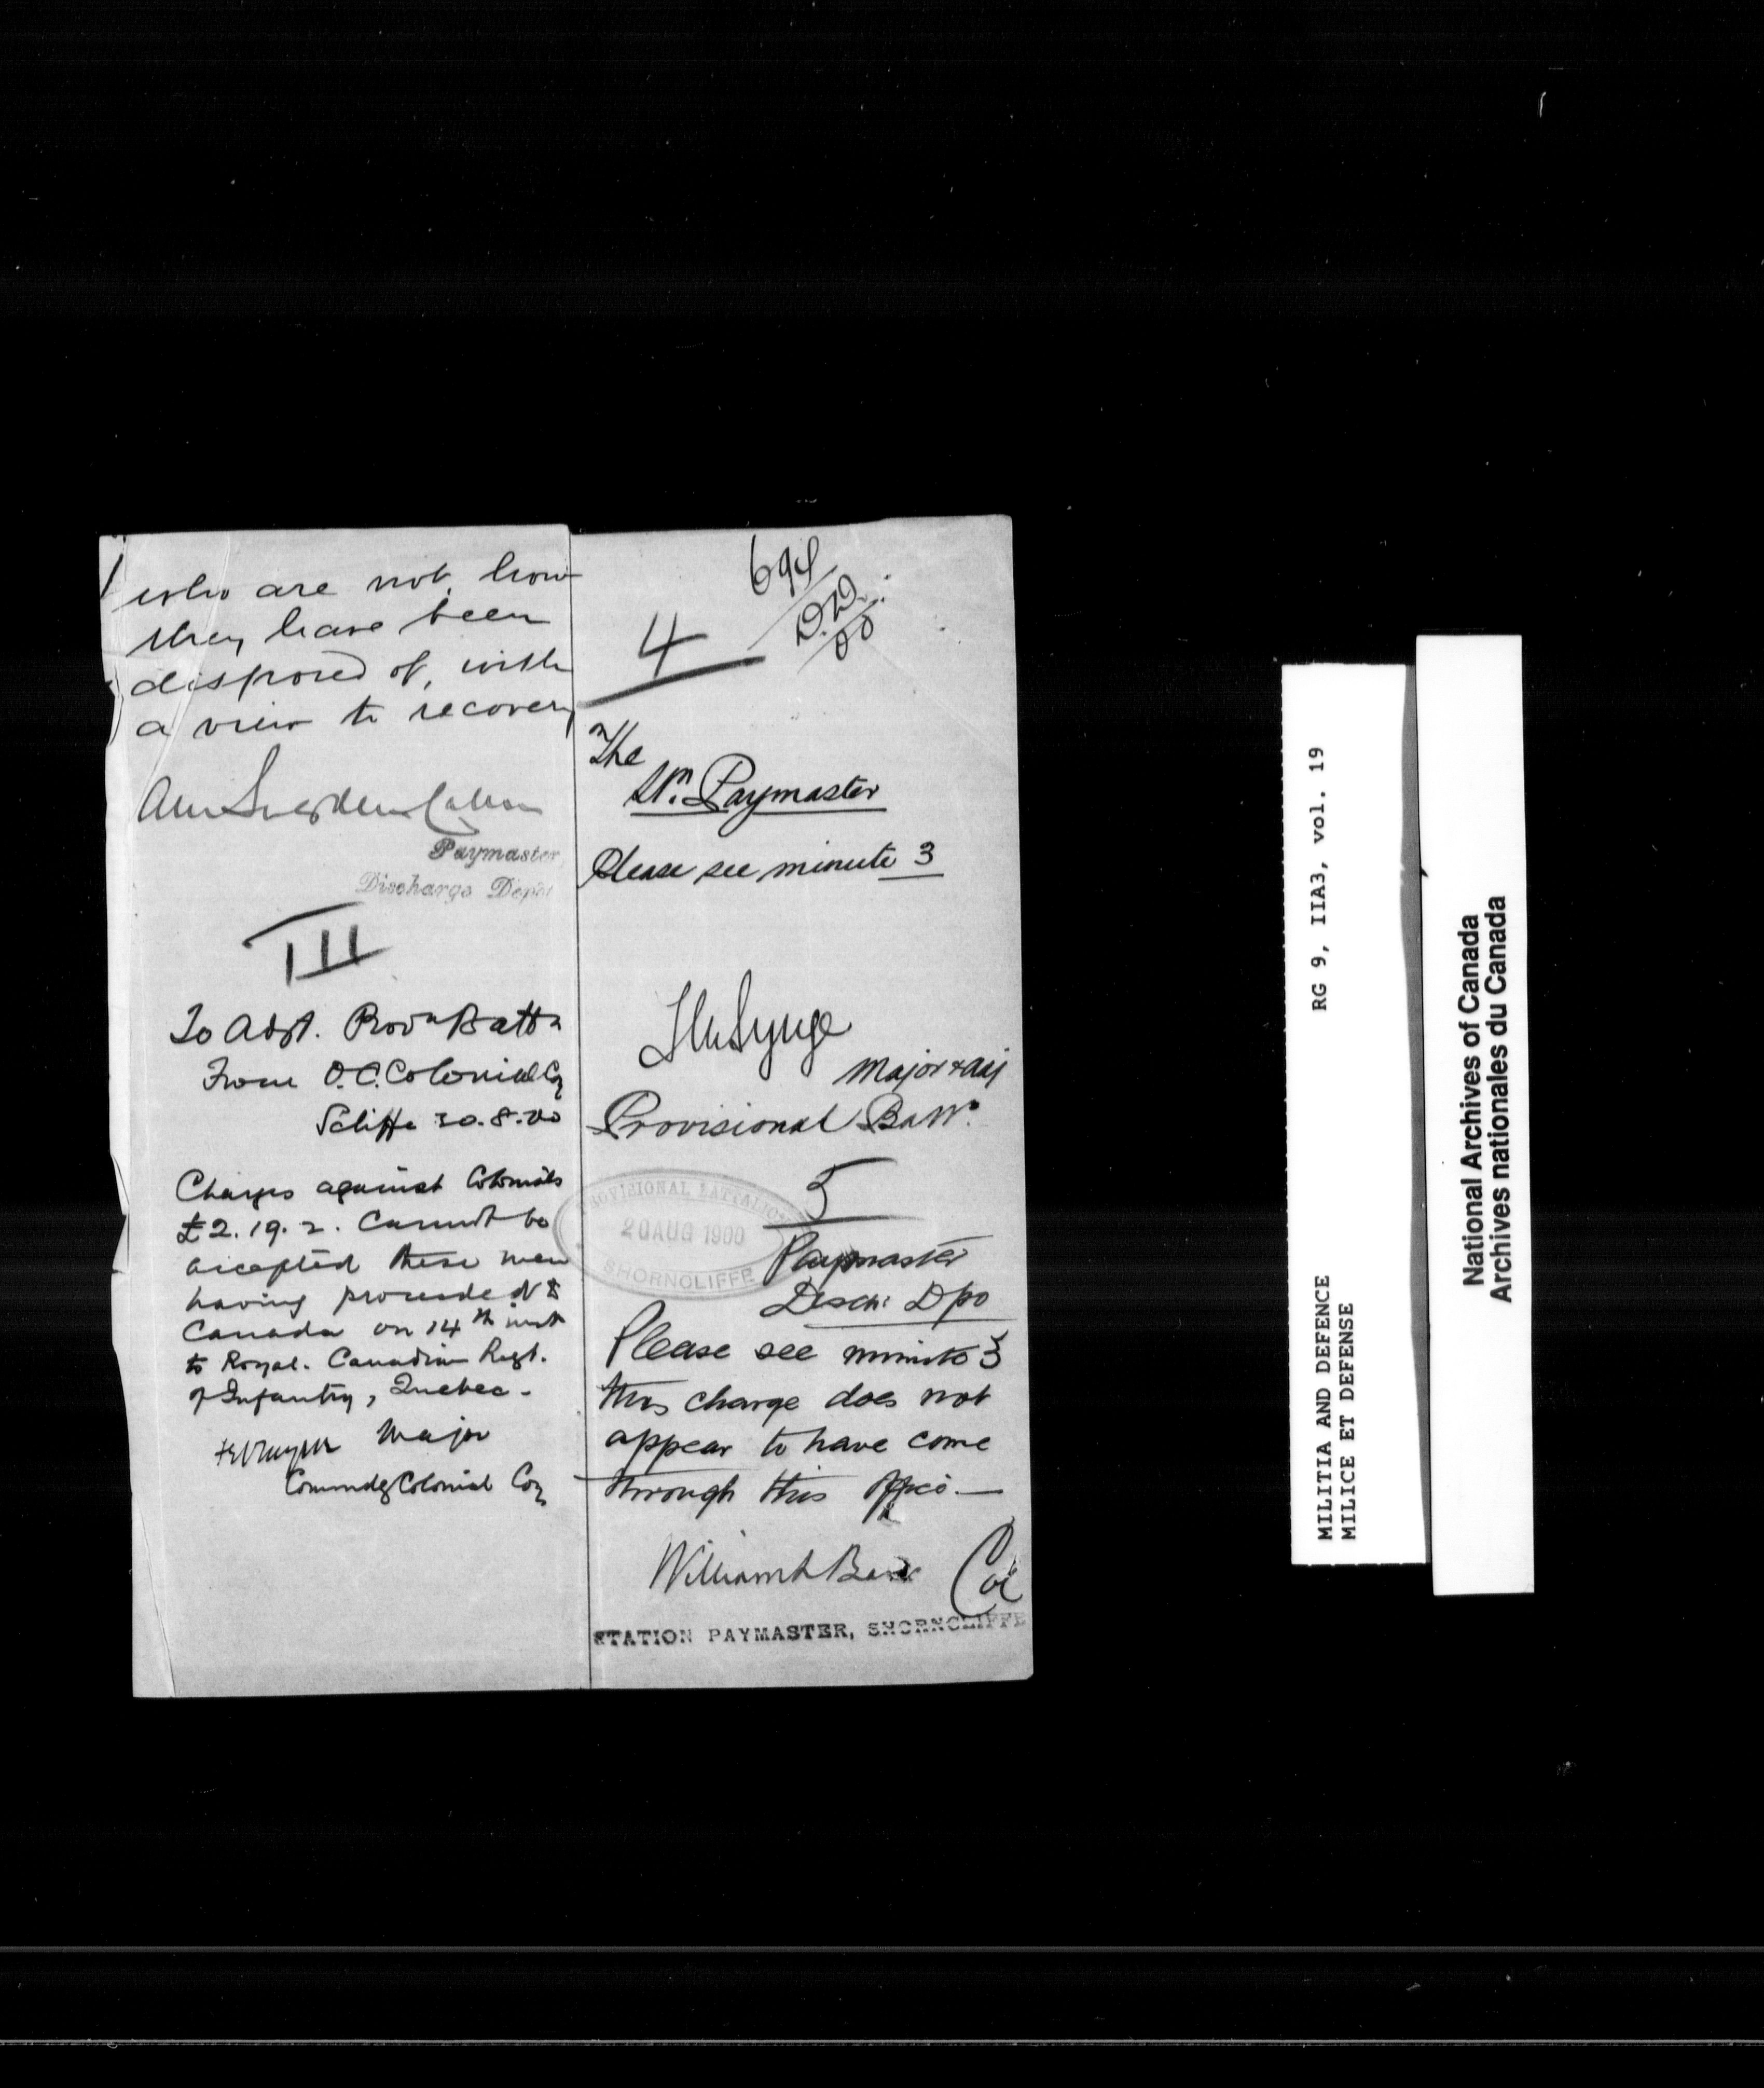 who are not, how
they have been
disposed of, with
a view to recovery
Paymaster
Discharge Depôt
III
To Adjt. Provn Battn
From O.C. Colonial Coy
S'cliffe 20.8.00
Charges against Colonials
£2.19.2. Cannot be
accepted these men
having proceeded to
Canada on 14th inst
to Royal. Canadian Regt.
of Infantry, Quebec.
Major
Commdg Colonial Coy
694
D.D.
00
4
The
Stn. Paymaster
Please see minute 3
Synge
Major & Adj
Provisional Battn.
PROVISIONAL BATTALION
20 AUG 1900
SHORNCLIFFE
5
Paymaster
Disch: Dpo
Please see minute 3
this charge does not
appear to have come
through this office.—
William
Col
STATION PAYMASTER, SHORNCLIFFE
RG 9, IIA3, vol. 19
MILITIA AND DEFENCE
MILICE ET DEFENSE
National Archives of Canada
Archives nationales du Canada